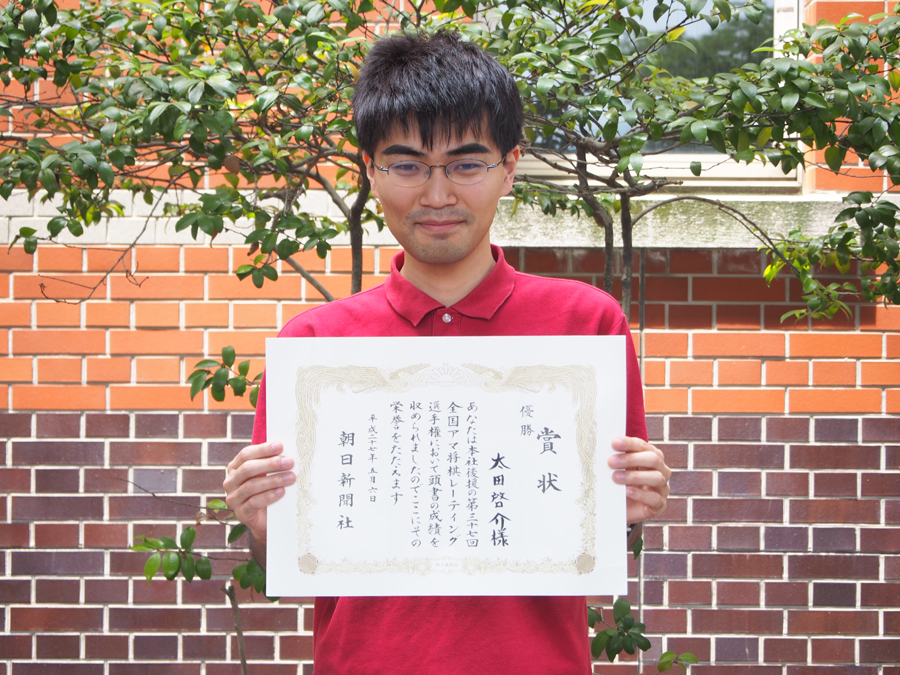 賞状
優勝
太田啓介様
あなたは本社後援の第三十七回
全国アマ将棋レーティング
選手権において頭書の成績を
収められましたのでここにその
栄誉をたたえます
平成二十七年五月六日
朝日新聞社